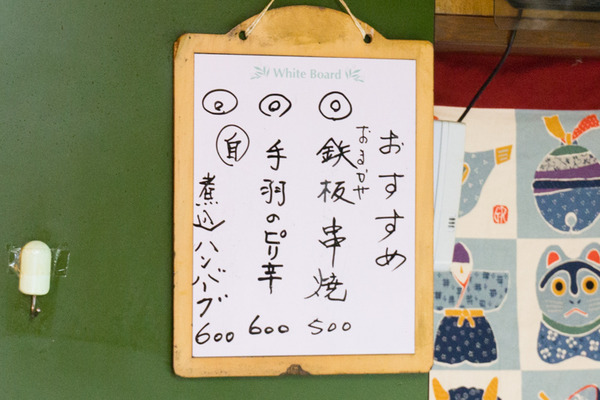 White Board
おすすめ
おまかせ
◎ 鉄板串焼 500
◎ 手羽のピリ辛 600
◎ 自 煮込ハンバーグ 600